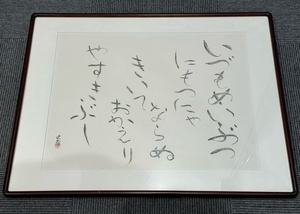 いづもめいぶつ
にもつにや
ならぬ
きいて
おかえり
やすきぶし